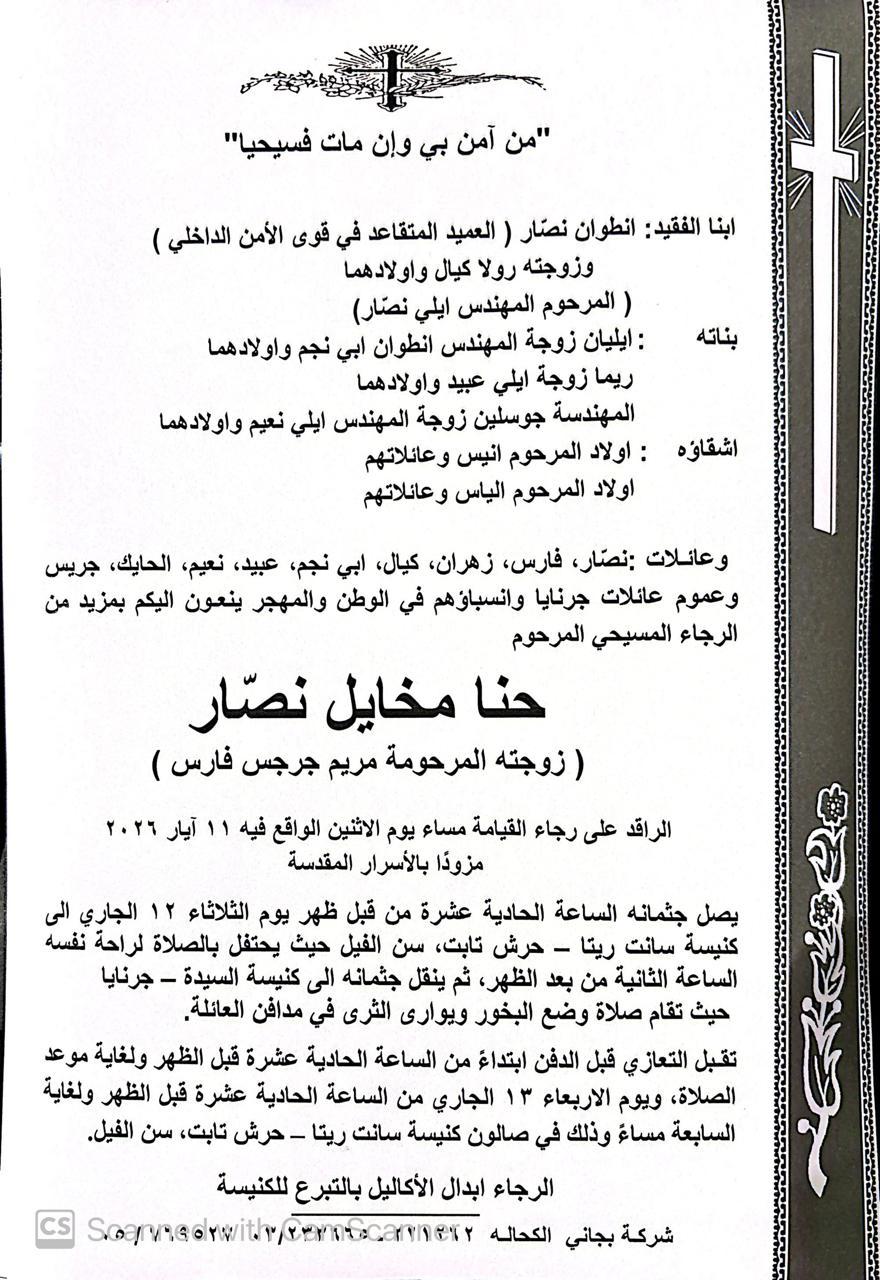 "من آمن بي وإن مات فسيحيا"
ابنا الفقيد: انطوان نصّار ( العميد المتقاعد في قوى الأمن الداخلي )
وزوجته رولا كيال واولادهما
( المرحوم المهندس ايلي نصّار)
بناته : ايليان زوجة المهندس انطوان ابي نجم واولادهما
ريما زوجة ايلي عبيد واولادهما
المهندسة جوسلين زوجة المهندس ايلي نعيم واولادهما
اشقاؤه : اولاد المرحوم انيس وعائلاتهم
اولاد المرحوم الياس وعائلاتهم
وعائلات :نصّار، فارس، زهران، كيال، ابي نجم، عبيد، نعيم، الحايك، جريس
وعموم عائلات جرنايا وانسباؤهم في الوطن والمهجر ينعون اليكم بمزيد من
الرجاء المسيحي المرحوم
حنا مخايل نصّار
( زوجته المرحومة مريم جرجس فارس )
الراقد على رجاء القيامة مساء يوم الاثنين الواقع فيه ١١ آيار ٢٠٢٦
مزودًا بالأسرار المقدسة
يصل جثمانه الساعة الحادية عشرة من قبل ظهر يوم الثلاثاء ١٢ الجاري الى
كنيسة سانت ريتا – حرش تابت، سن الفيل حيث يحتفل بالصلاة لراحة نفسه
الساعة الثانية من بعد الظهر، ثم ينقل جثمانه الى كنيسة السيدة – جرنايا
حيث تقام صلاة وضع البخور ويوارى الثرى في مدافن العائلة.
تقبل التعازي قبل الدفن ابتداءً من الساعة الحادية عشرة قبل الظهر ولغاية موعد
الصلاة، ويوم الاربعاء ١٣ الجاري من الساعة الحادية عشرة قبل الظهر ولغاية
السابعة مساءً وذلك في صالون كنيسة سانت ريتا – حرش تابت، سن الفيل.
الرجاء ابدال الأكاليل بالتبرع للكنيسة
شركة بجاني الكحاله
CS Scanned with CamScanner